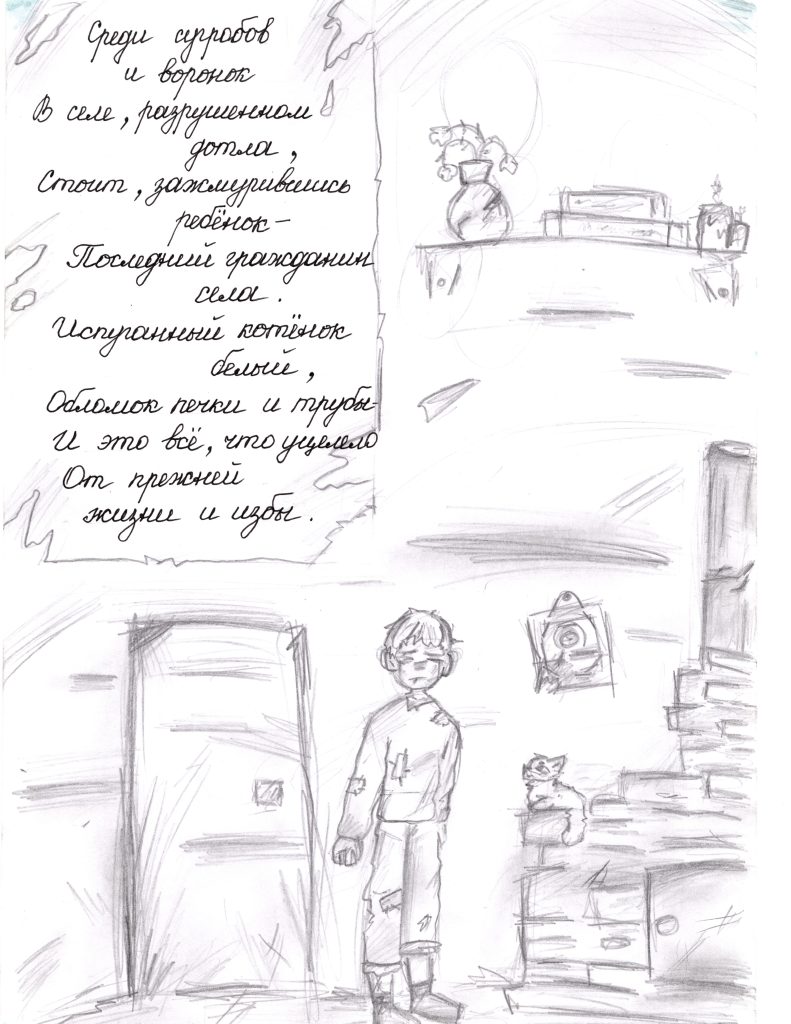 Среди сугробов
и воронок
В селе, разрушенном
дотла,
Стоит, зажмурившись
ребёнок-
Последний гражданин
села.
Испуганный котёнок
белый,
Обломок печки и трубы-
И это всё, что уцелело
От прежней
жизни и избы.